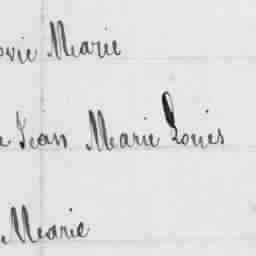 Marie
Jean Marie Louis
Marie